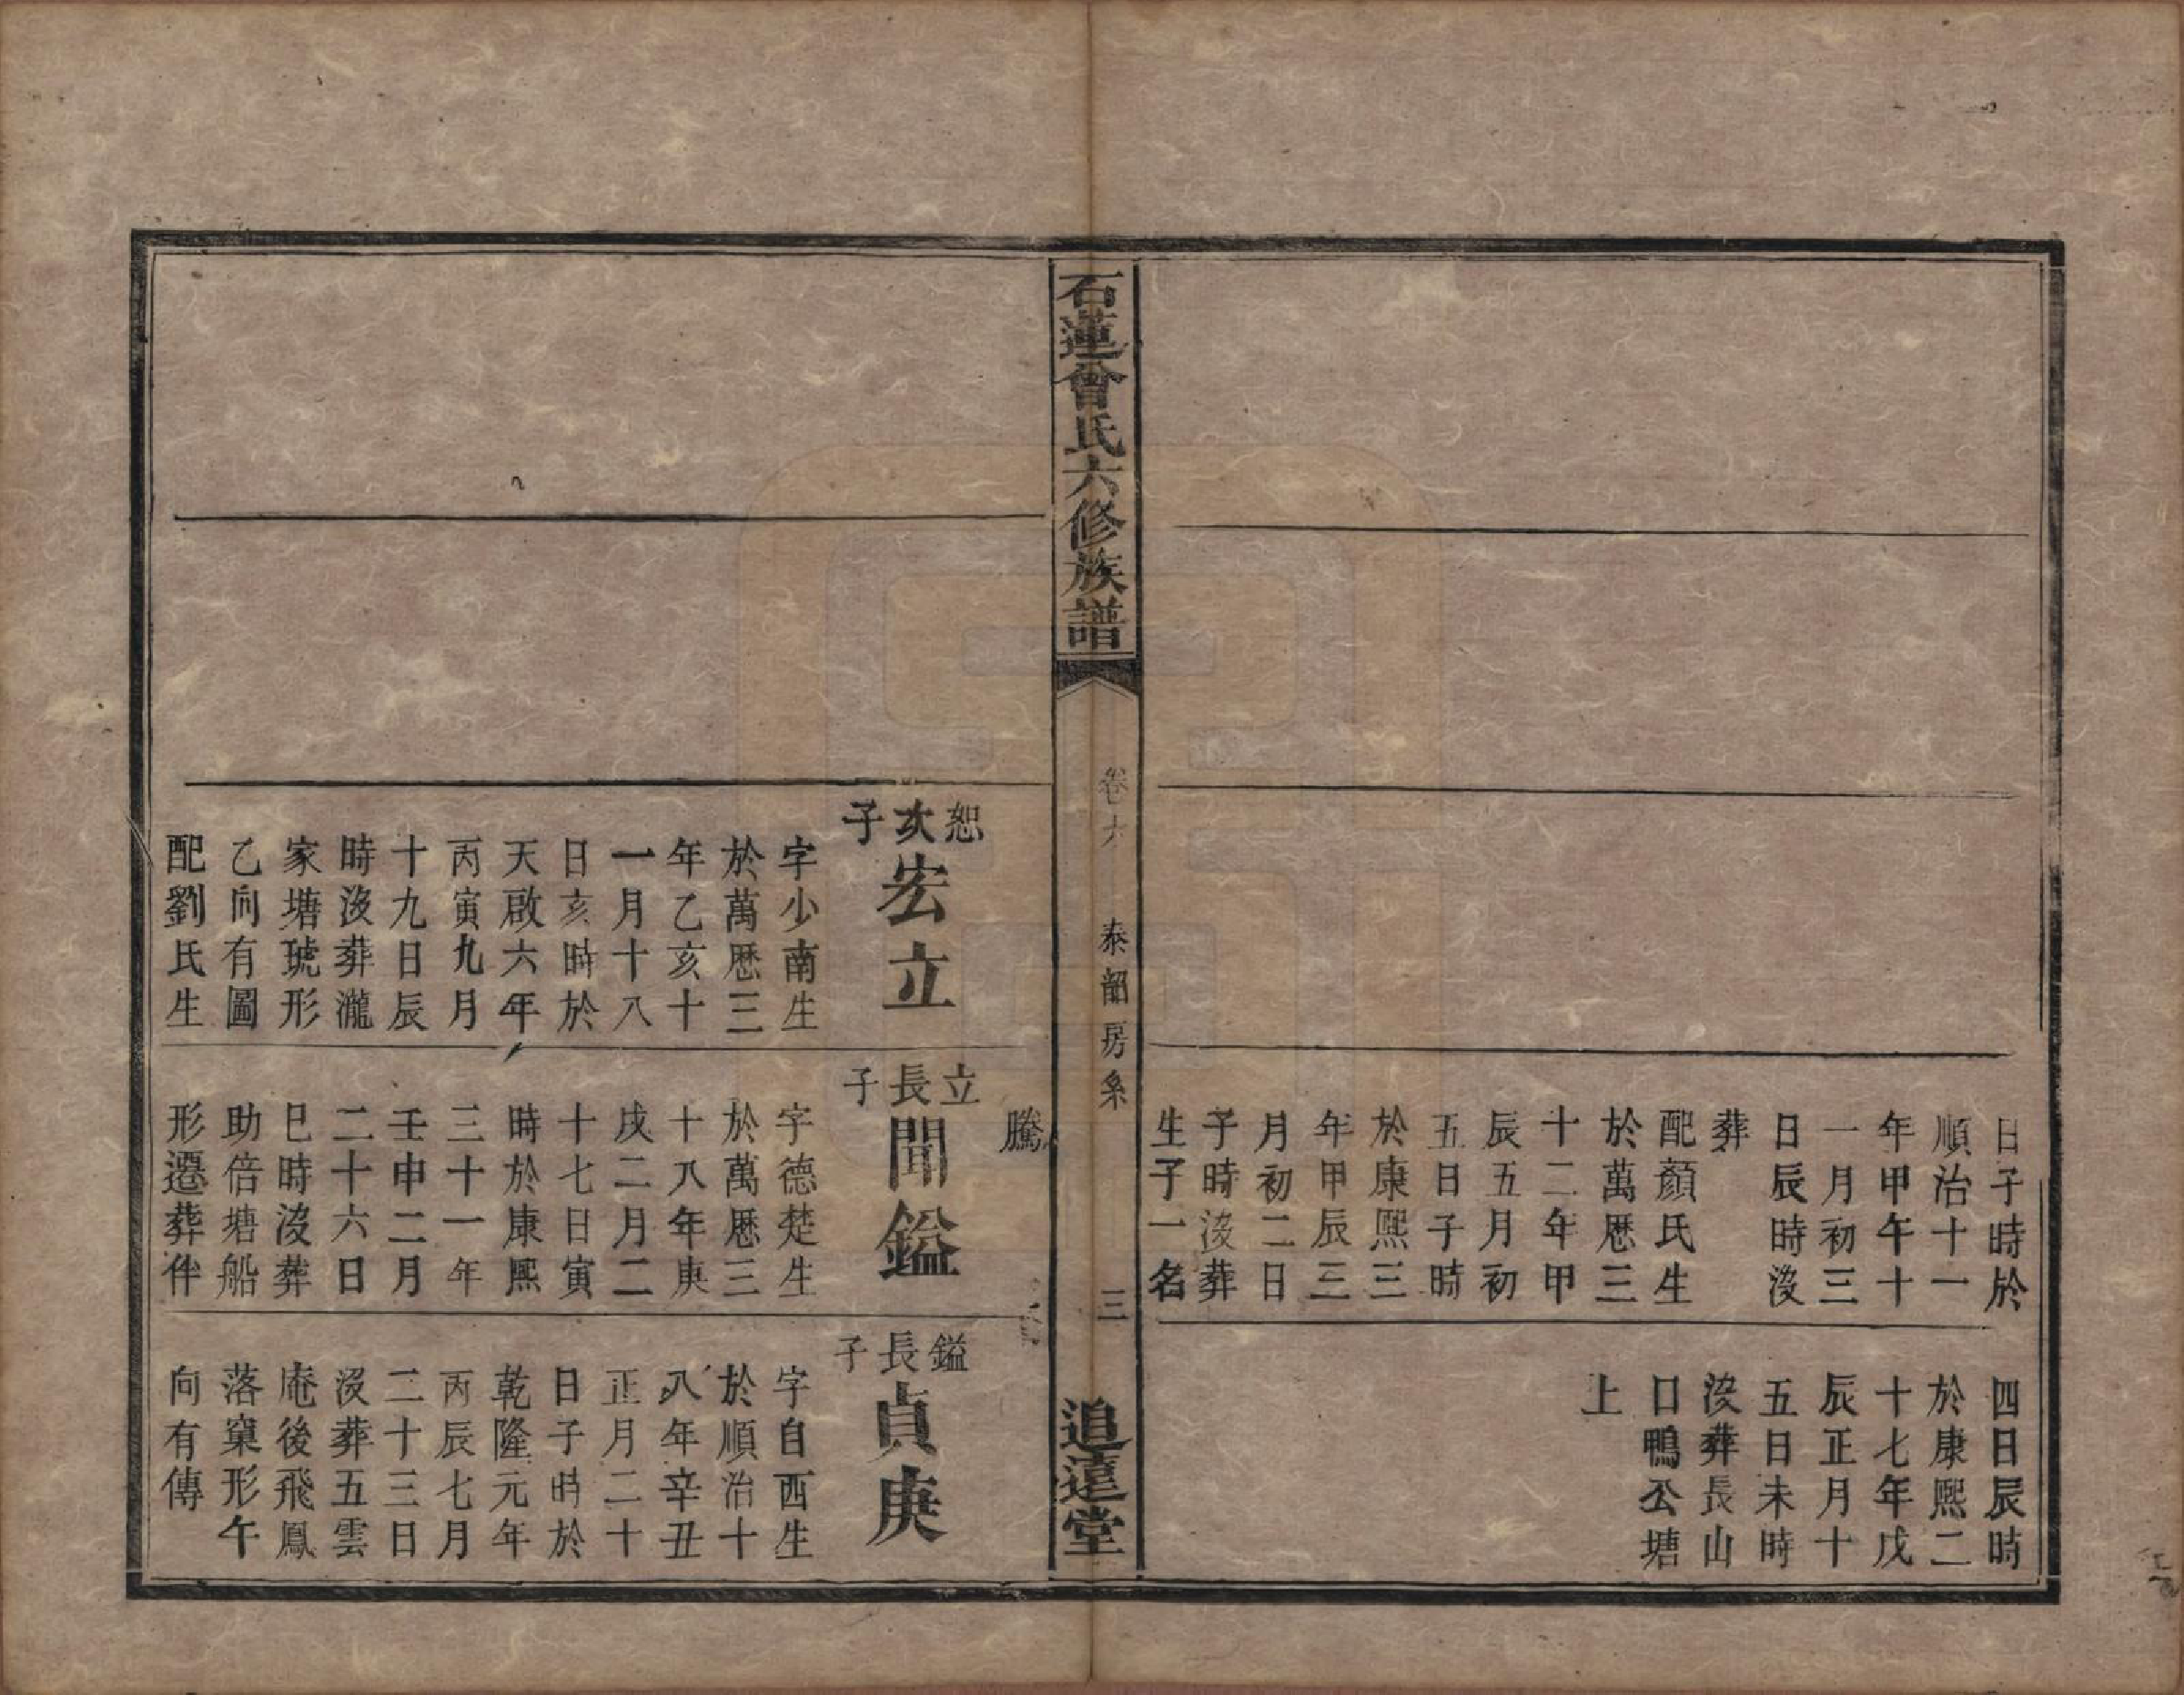 日子時於
順治十一
年甲午十
一月初三
日辰時沒
葬
配顏氏生
於萬厯三
十二年甲
辰五月初
五日子時
於康熙三
年甲辰三
月初二日
子時沒葬
生子一名
四日辰時
於康熙二
十七年戊
辰正月十
五日未時
沒葬長山
口鴨公塘
上
石蓮曾氏六修族譜
卷六
泰韶房系
三
追遠堂
騰
恕次子
宏立
字少南生
於萬厯三
年乙亥十
一月十八
日亥時於
天啟六年
丙寅九月
十九日辰
時沒葬瀧
家塘琥形
乙向有圖
配劉氏生
立長子
聞鎰
字德楚生
於萬厯三
十八年庚
戌二月二
十七日寅
時於康熙
三十一年
壬申二月
二十六日
巳時沒葬
助倍塘船
形遷葬伴
鎰長子
貞庚
字自西生
於順治十
八年辛丑
正月二十
日子時於
乾隆元年
丙辰七月
二十三日
沒葬五雲
庵後飛鳳
落窠形午
向有傳